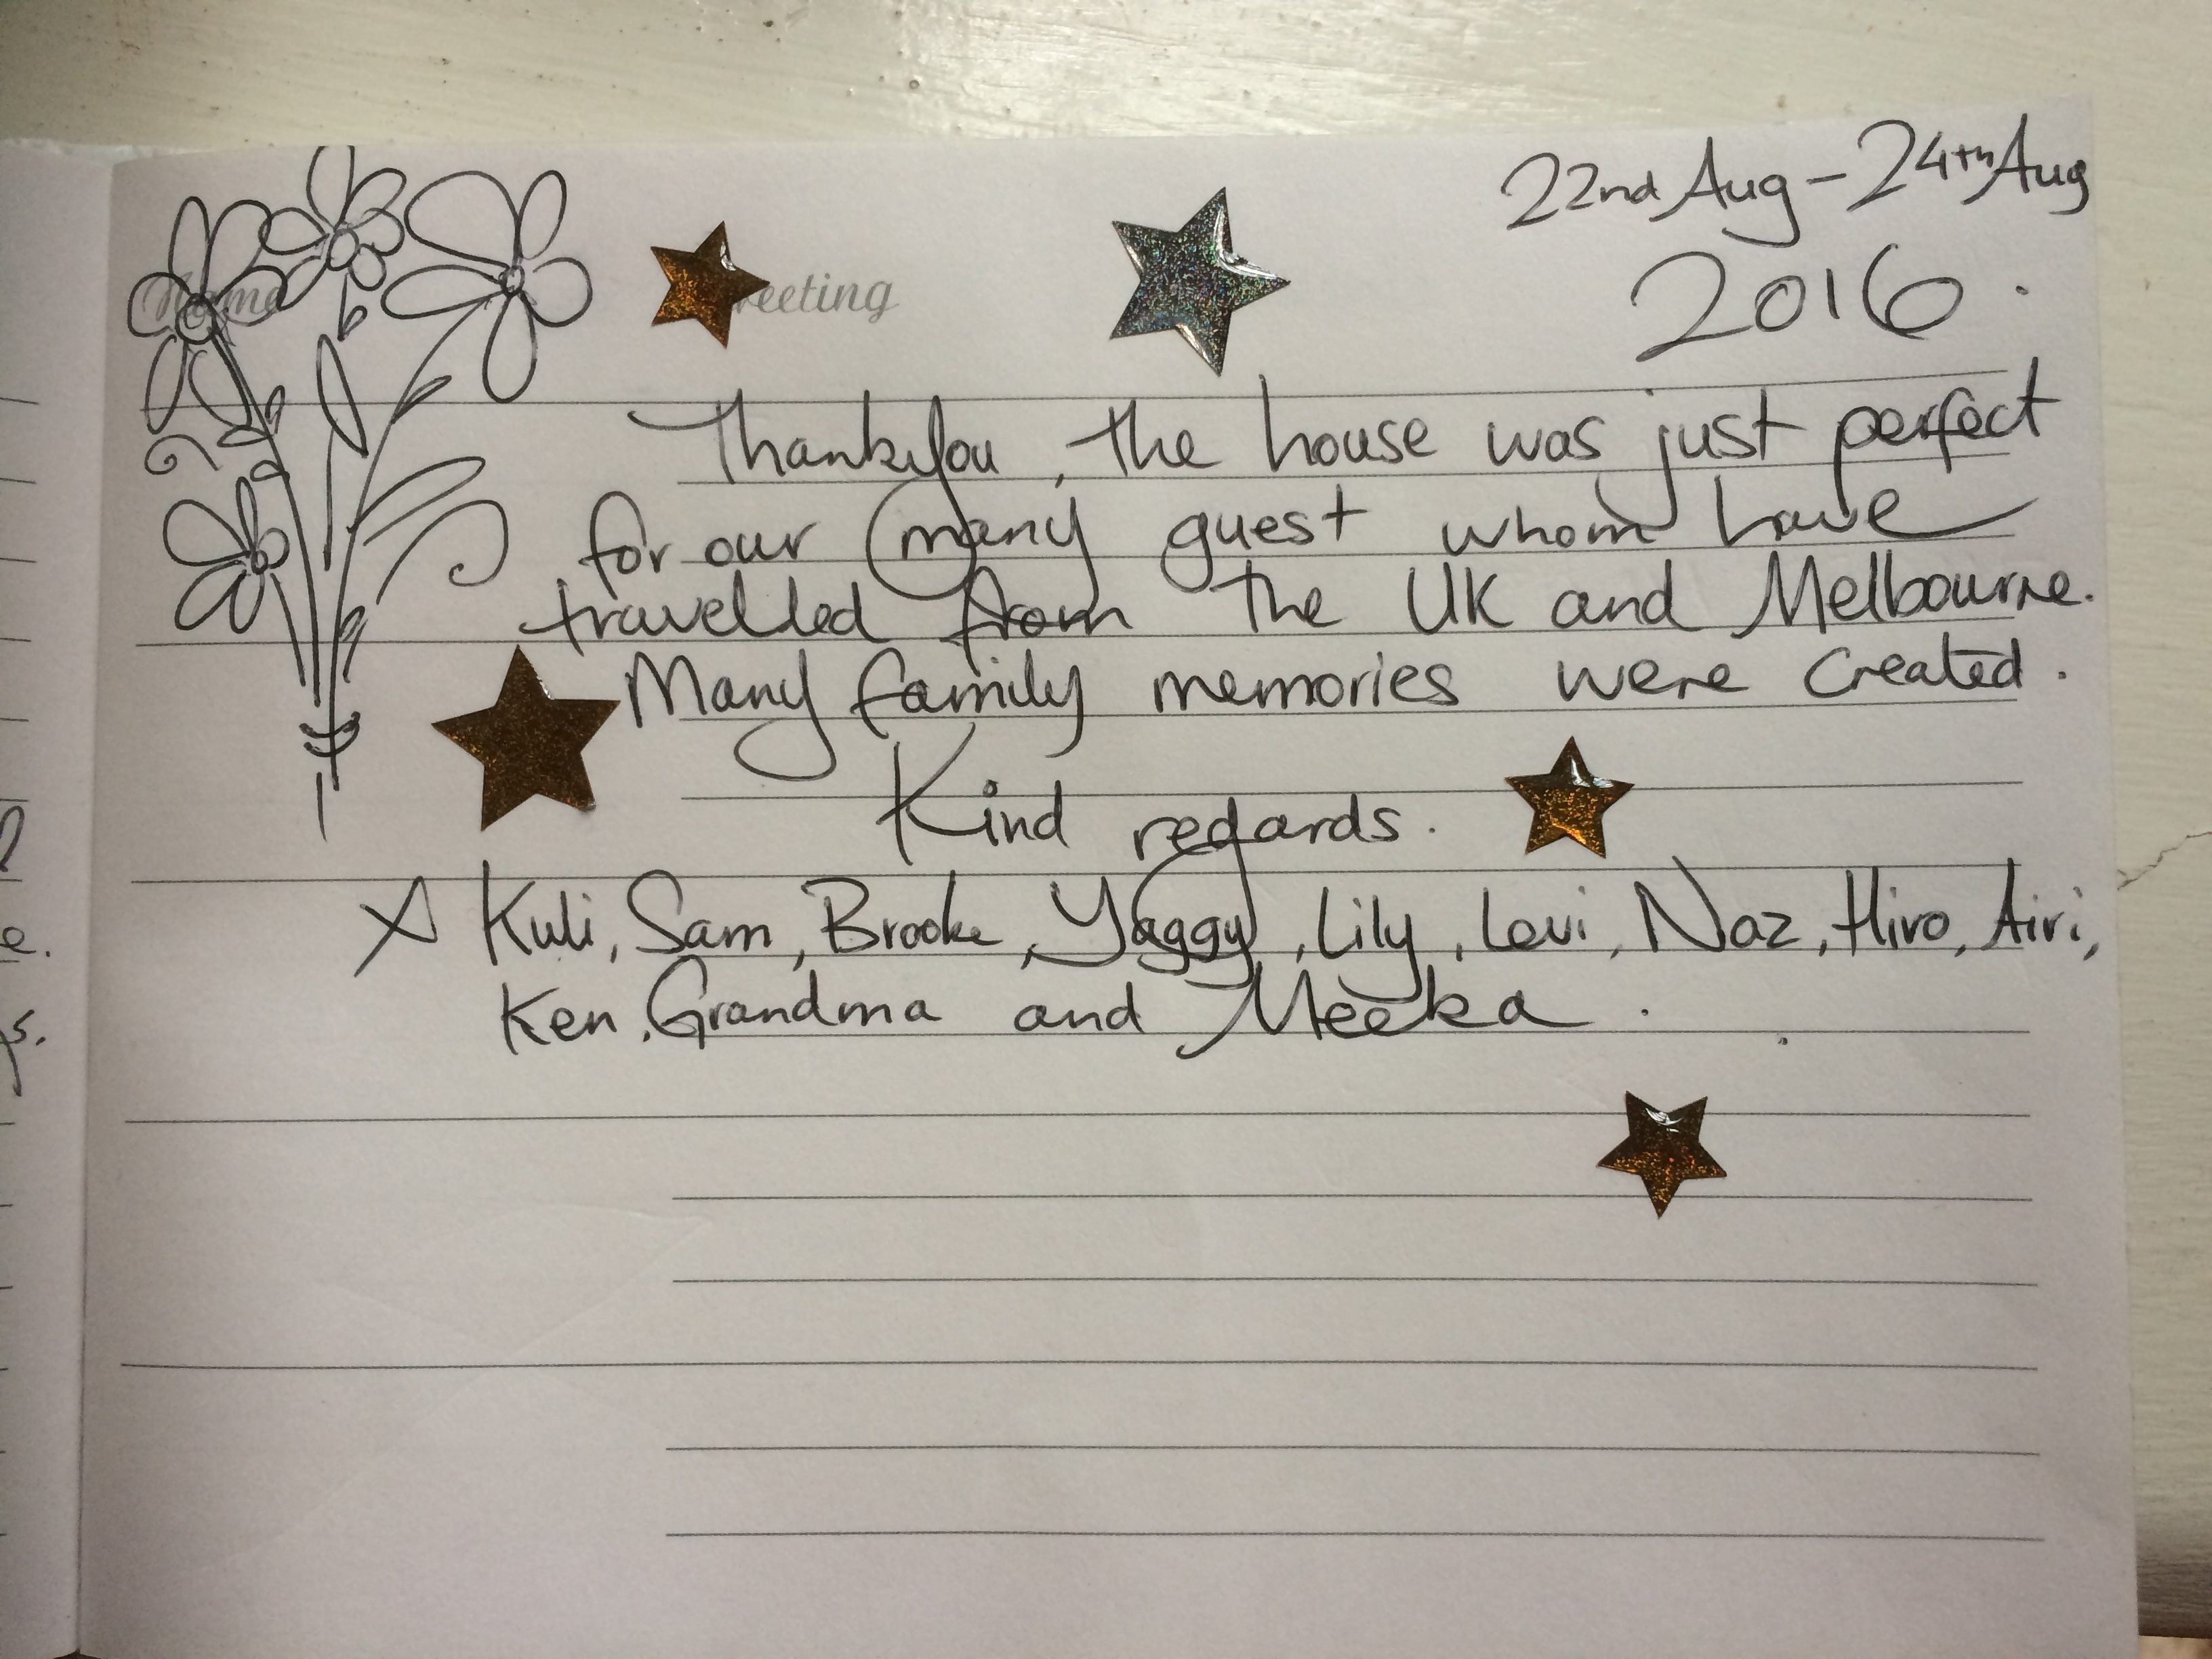 22nd Aug - 24th Aug
2016.
Name
Thankyou, the house was just perfect
for our many guest whom have
travelled from the UK and Melbourne.
Many family memories were created.
Kind regards.
X Kuli, Sam, Brooke, Yaggy, Lily, Levi, Naz, Hiro, Airi,
Ken, Grandma and Meeka.
e.
s.